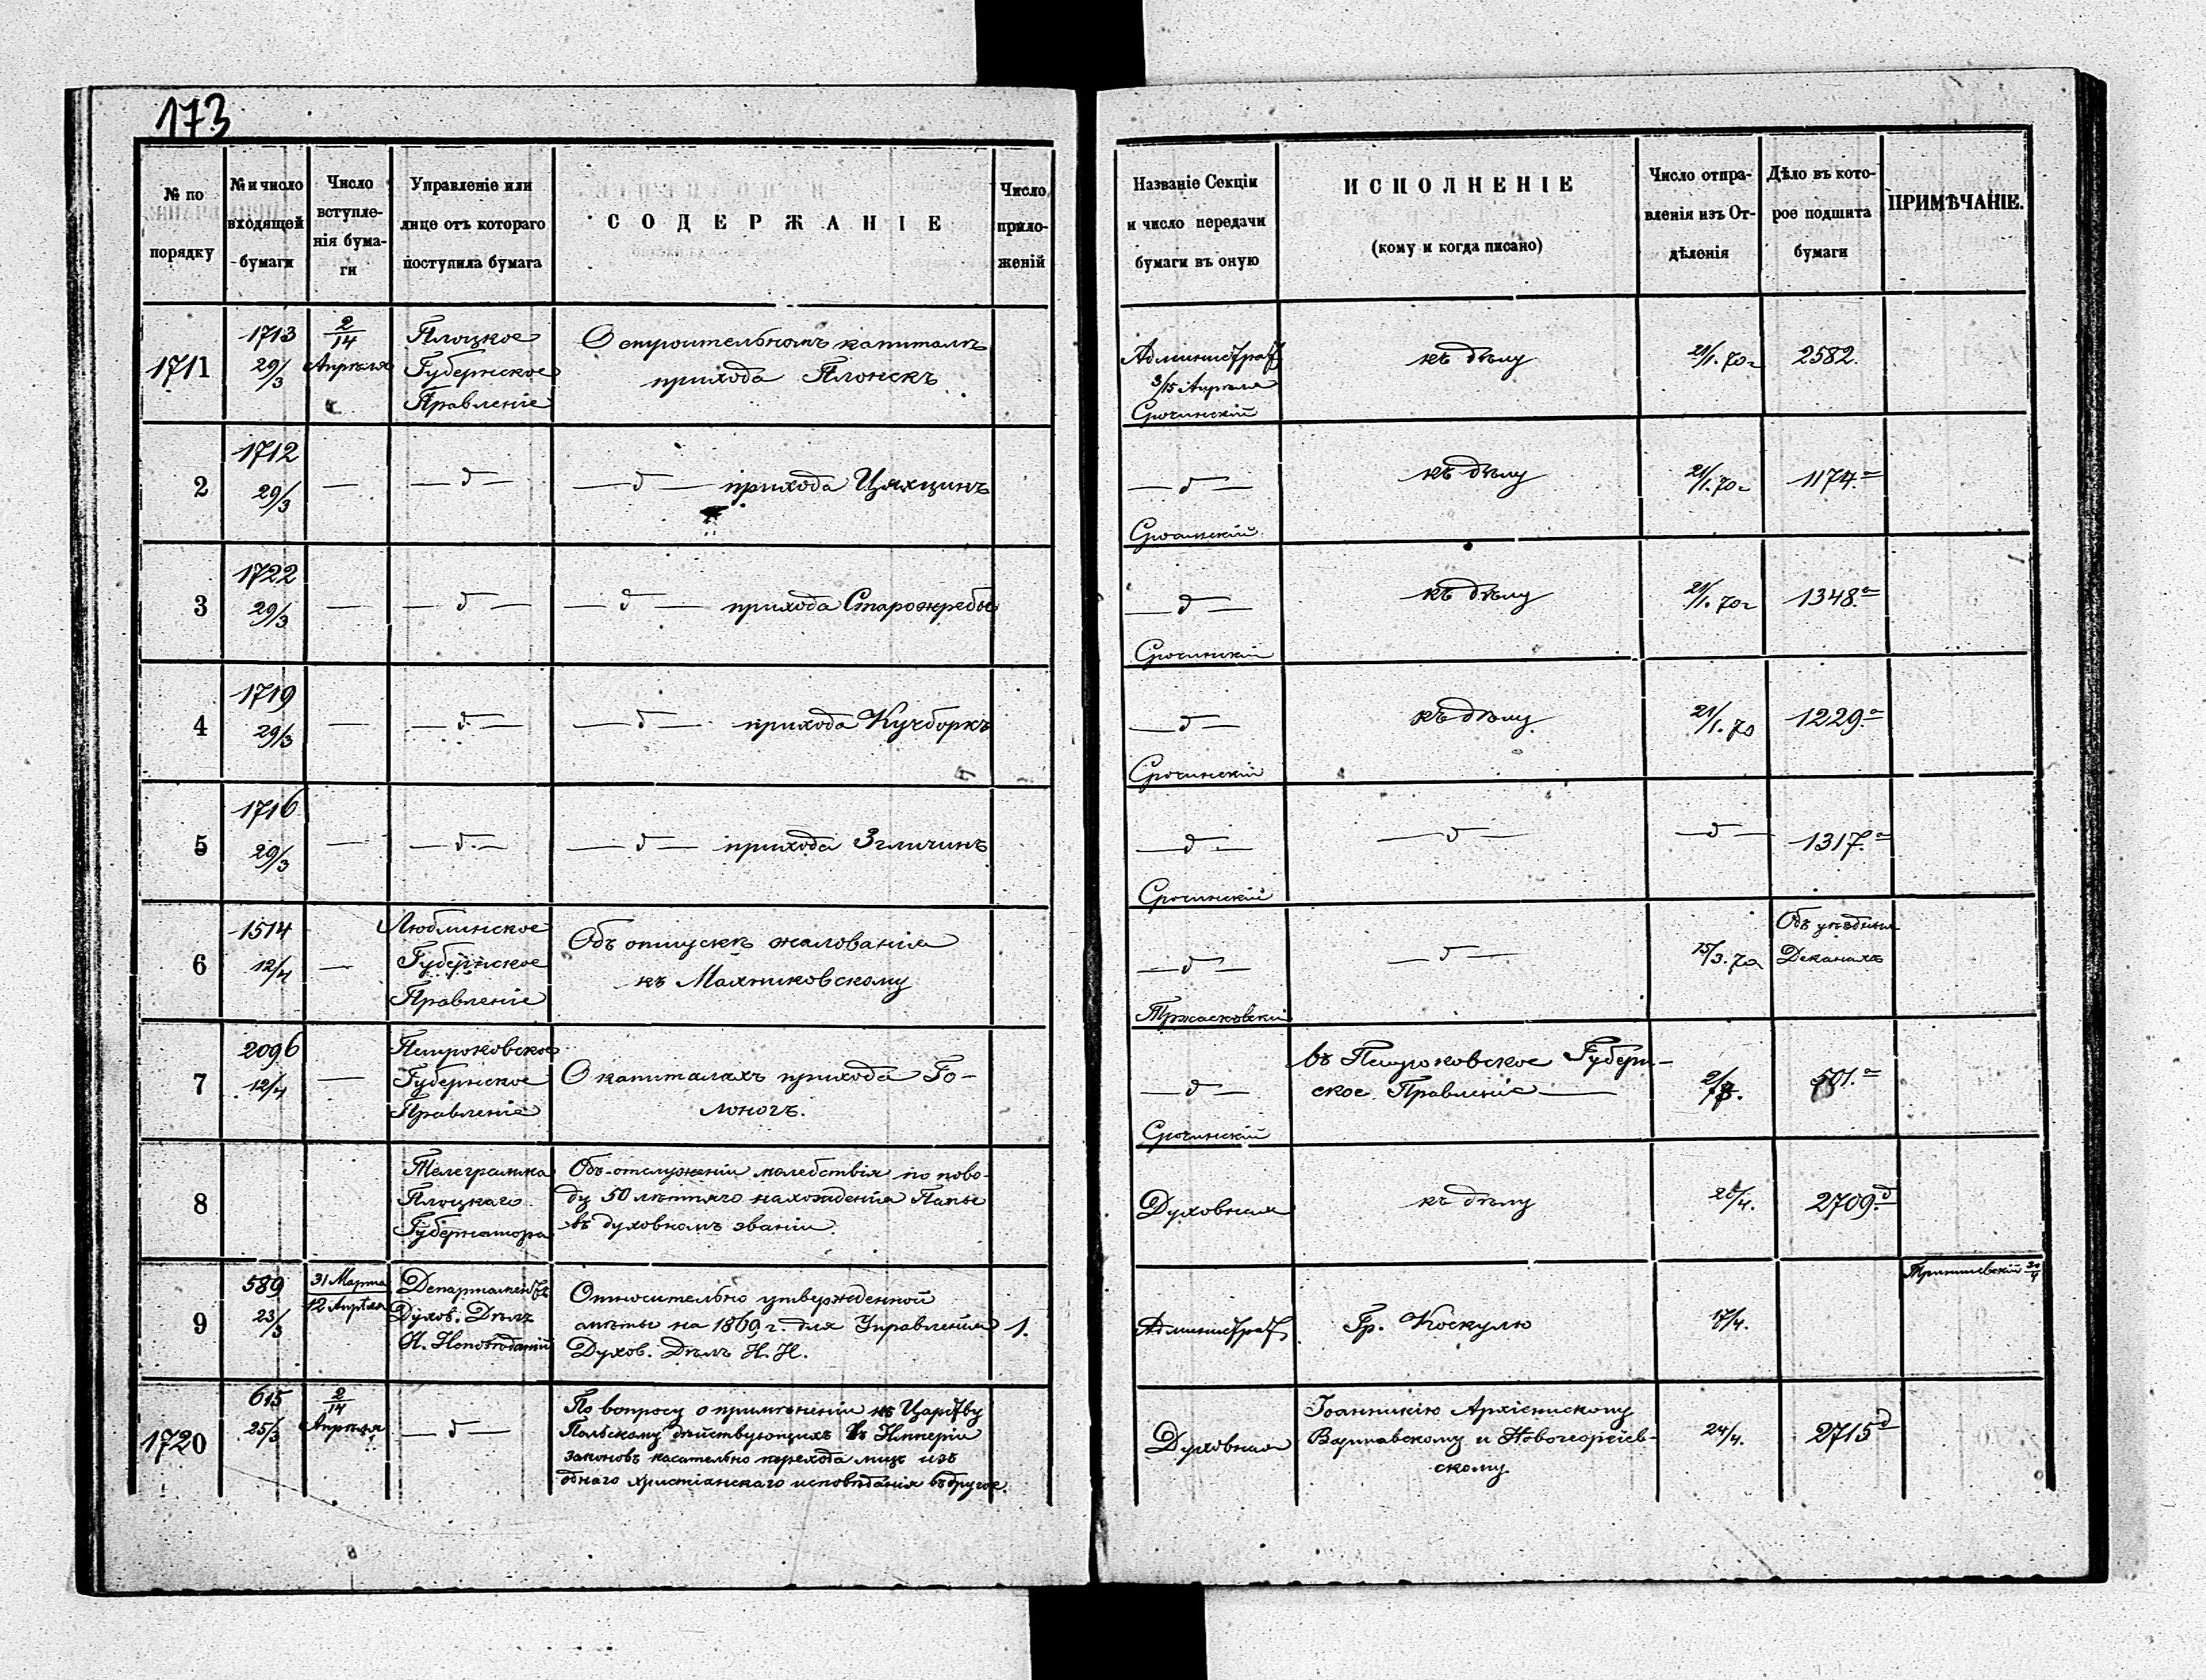 173
№ по порядку
№ и число входящей бумаги
Число вступле-нія бума-ги
Управленіе или лице отъ котораго поступила бумага
СОДЕРЖАНІЕ
Число прило-женій
Названіе Секціи и число передачи бумаги въ оную
ИСПОЛНЕНІЕ
(кому и когда писано)
Число отпра-вленія изъ От-дѣленія
Дѣло въ кото-рое подшита бумаги
ПРИМѢЧАНІЕ.
1711
1713
29/3
2/14
Апрѣля
Плоцкое
Губернское
Правленіе
О строительномъ капиталѣ
прихода Плонскъ
3/15 Апрѣля
къ дѣлу
21/1. 70 г
2582.
2
1712
29/3
—
— д —
— д — прихода Цяхцинъ
— д —
къ дѣлу
21/1. 70 г
1174. а
3
1722
29/3
—
— д —
— д — прихода Старожребы
— д —
къ дѣлу
21/1. 70 г
1348. а
4
1719
29/3
—
— д —
— д — прихода Кучборкъ
— д —
къ дѣлу.
21/1. 70
1229 а
5
1716
29/3
—
— д. —
— д — прихода Згличинъ
— д —
— д —
— д —
1317. а
6
1514
12/4
—
Люблинское
Губернское
Правленіе
Объ отпускѣ жалованія
кс Махниковскому
— д —
— д —
15/3. 70
Объ уѣздныхъ
Деканахъ
7
2096
12/4
—
Петроковское
Губернское
Правленіе
О капиталахъ прихода Го-
лоногъ.
— д —
въ Петроковское Губерн-
ское Правленіе —
501. а
8
Телеграмма
Плоцкаго
Губернатора
Объ отслуженіи молебствія по пово-
ду 50 лѣтняго нахожденія Папы
въ духовномъ званіи.
Духовная
къ дѣлу
20/4.
2709. д
9
589
23/3
31 Марта
12 Апрѣля
Департаментъ
Духов. Дѣлъ
И. Исповѣданій
Относительно утвержденной
смѣты на 1869 г. для Управленія
Духов. Дѣлъ И. И.
1.
Администрат
Гр. Коскулю
17/4.
1720
615
25/3
2/14
Апрѣля
— д —
По вопросу о примѣненіи къ Царству
Польскому дѣйствующихъ въ Имперіи
законовъ касательно перехода лицъ изъ
однаго христіанскаго исповѣданія въ другое.
Духовная
Іоанникію Архіепископу
Варшавскому и Новогеоргіев-
скому.
24/4.
2715 д